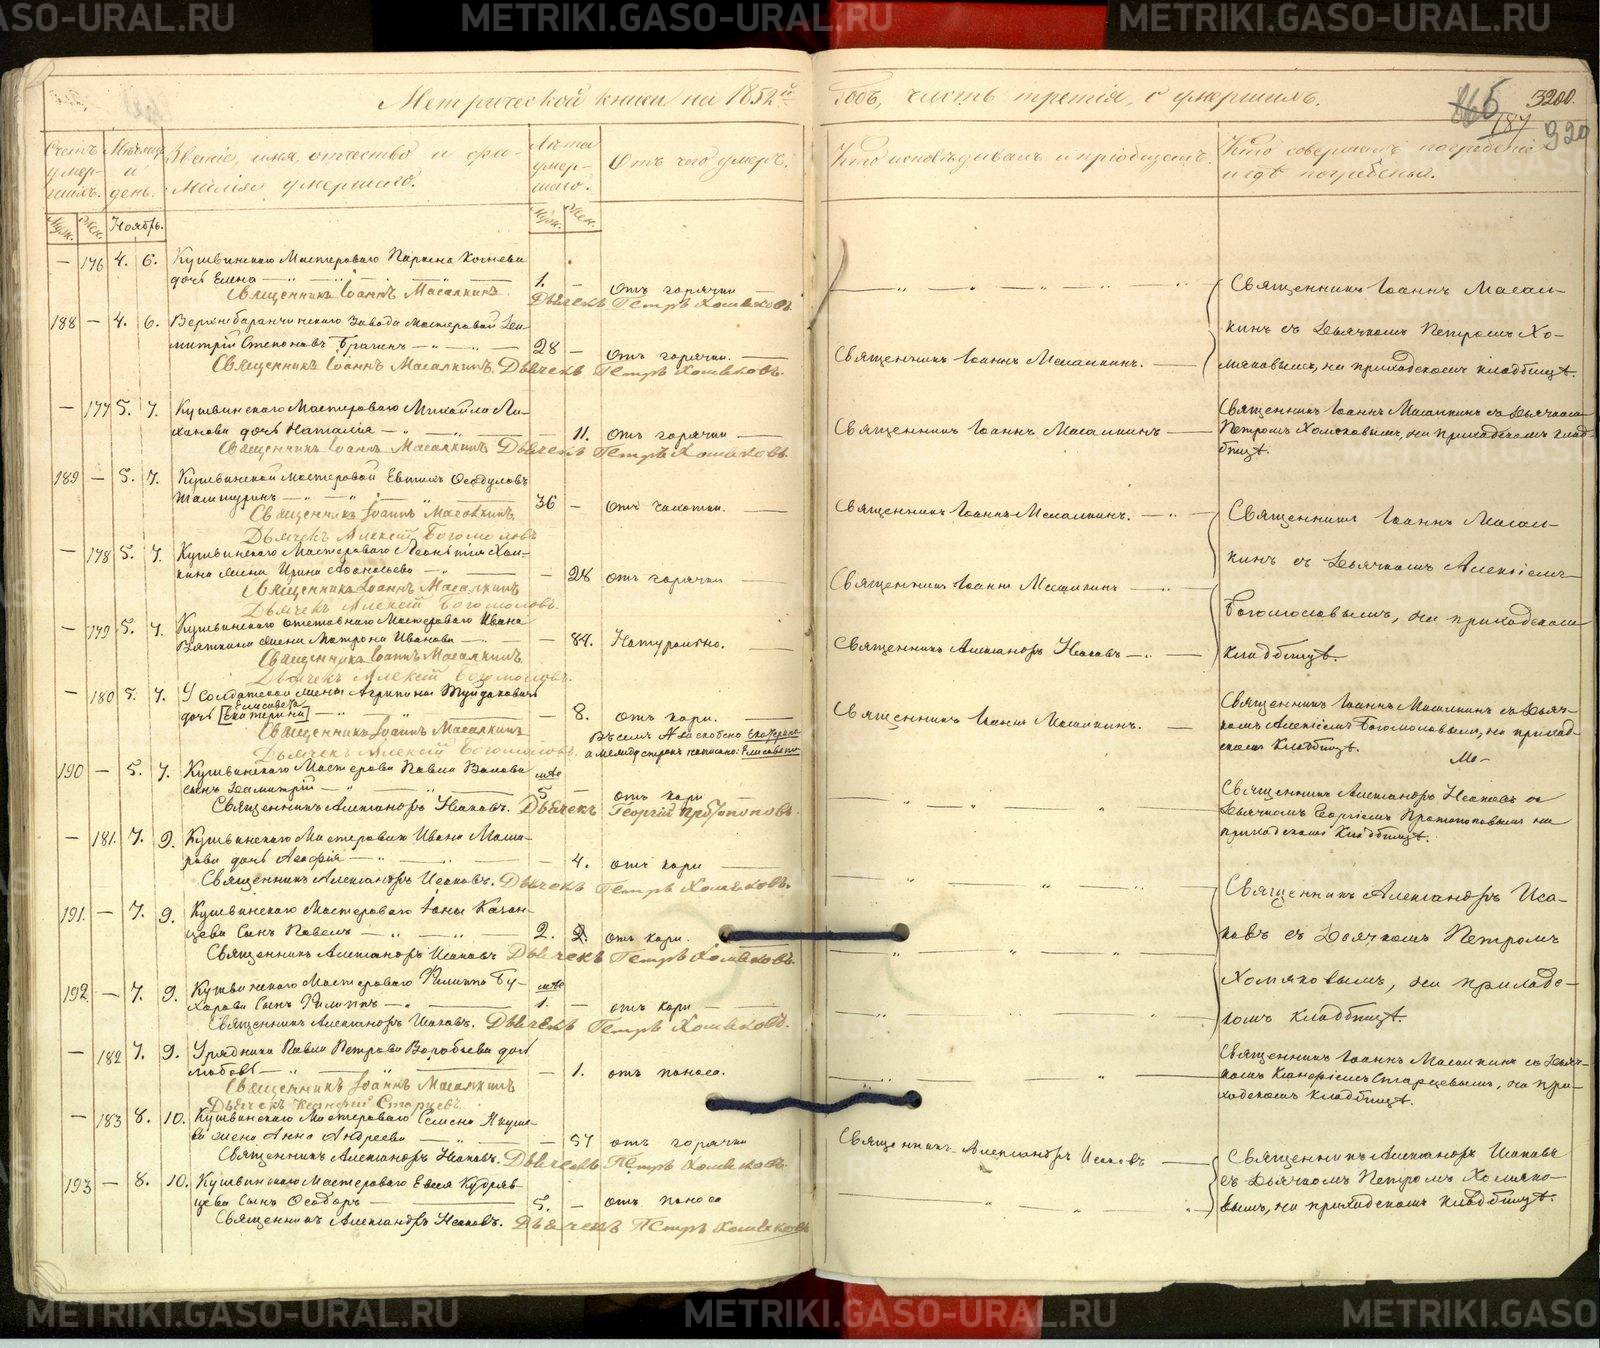 METRIKI.GASO-URAL.RU
Метрической книги на 1852й
Годъ, часть третія, о умершихъ.
3200.
187
320
Счетъ умер-шихъ.
Мѣсяцъ и день.
Званіе, имя, отчество и фа-
милія умершаго.
Лѣта умер-шаго.
Отъ чего умеръ.
Кто исповѣдывалъ и пріобщалъ.
Кто совершалъ погребеніе
и гдѣ погребены.
Муж. Жен. Ноябрь. Муж. Жен.
— 176 4. 6. Кушвинскаго Мастероваго
дочь Елена 1. — Отъ горячки
Священникъ Іоаннъ Масалкинъ. Дьячекъ Петръ Хомяковъ.
Священникъ Іоаннъ Масал-
кинъ съ Дьячкомъ Петромъ Хо-
мяковымъ, на приходскомъ кладбищѣ.
188 — 4. 6. Верхнебаранчинскаго Завода Мастеровой Ди-
митрій Степановъ Брагинъ 28 — Отъ горячки.
Священникъ Іоаннъ Масалкинъ.
Священникъ Іоаннъ Масалкинъ. Дьячекъ Петръ Хомяковъ.
— 177 5. 7. Кушвинскаго Мастероваго Михайла Ли-
ханова дочь Наталія — 11. отъ горячки
Священникъ Іоаннъ Масалкинъ
Священникъ Іоаннъ Масалкинъ Дьячекъ Петръ Хомяковъ.
Священникъ Іоаннъ Масалкинъ съ Дьячкомъ
Петромъ Хомяковымъ, на приходскомъ клад-
бищѣ.
189 — 5. 7. Кушвинской Мастеровой Евтихъ
36 — отъ чахотки.
Священникъ Іоаннъ Масалкинъ.
Священникъ Іоаннъ Масалкинъ
Дьячекъ Алексѣй Богомоловъ
Священникъ Іоаннъ Масал-
кинъ съ Дьячкомъ Алексіемъ
— 178 5. 7. Кушвинскаго Мастероваго Леонтія
жена Ирина Афанасьева — 28 отъ горячки
Священникъ Іоаннъ Масалкинъ
Священникъ Іоаннъ Масалкинъ
Дьячекъ Алексѣй Богомоловъ.
Богомоловымъ, на приходскомъ
кладбищѣ.
— 179 5. 7. Кушвинскаго отставнаго Мастероваго Ивана
Вяткина жена Матрона Иванова — 84. Натурально.
Священникъ Александръ Исаковъ
Священникъ Іоаннъ Масалкинъ
Дьячекъ Алексѣй Богомоловъ.
— 180 5. 7. У Солдатской жены Агрипины
Елисавета
дочь [Екатерина] — 8. отъ кори.
Священникъ Іоаннъ Масалкинъ.
Священникъ Іоаннъ Масалкинъ
Дьячекъ Алексѣй Богомоловъ.
Екатерина
а между строкъ написано: Елисавета
Священникъ Іоаннъ Масалкинъ съ Дьяч-
комъ Алексіемъ Богомоловымъ, на приход-
скомъ кладбищѣ.
190 — 5. 7. Кушвинскаго Мастероваго Павла
сынъ Димитрій 5 — отъ кори
Священникъ Александръ Исаковъ. Дьячекъ Георгій Протопоповъ.
Священникъ Александръ Исаковъ съ
Дьячкомъ Георгіемъ Протопоповымъ на
приходскомъ кладбищѣ.
— 181. 7. 9. Кушвинскаго Мастероваго Ивана
дочь Агафія — 4. отъ кори
Священникъ Александръ Исаковъ. Дьячекъ Петръ Хомяковъ.
Священникъ Александръ Иса-
ковъ съ Дьячкомъ Петромъ
Хомяковымъ, на приходс-
комъ кладбищѣ.
191. — 7. 9. Кушвинскаго Мастероваго Іоны Казан-
цева Сынъ Павелъ 2. отъ кори.
Священникъ Александръ Исаковъ Дьячекъ Петръ Хомяковъ.
192. — 7. 9. Кушвинскаго Мастероваго Филиппа Бу-
харова Сынъ Филиппъ 1. — отъ кори
Священникъ Александръ Исаковъ. Дьячекъ Петръ Хомяковъ.
— 182 7. 9. Урядника Павла Петрова Воробьева дочь
Любовь — 1. отъ поноса.
Священникъ Іоаннъ Масалкинъ
Дьячекъ Ксанфій Старцевъ.
Священникъ Іоаннъ Масалкинъ съ Дьяч-
комъ Ксанфіемъ Старцевымъ, на при-
ходскомъ кладбищѣ.
— 183 8. 10. Кушвинскаго Мастероваго Семена Якуше-
ва жена Анна Андреева — 57 отъ горячки
Священникъ Александръ Исаковъ
Священникъ Александръ Исаковъ. Дьячекъ Петръ Хомяковъ.
Священникъ Александръ Исаковъ
съ Дьячкомъ Петромъ Хомяко-
вымъ, на приходскомъ кладбищѣ.
193 — 8. 10. Кушвинскаго Мастероваго Евсея Кудряв-
цева Сынъ Ѳеодоръ 5. — отъ поноса
Священникъ Александръ Исаковъ. Дьячекъ Петръ Хомяковъ
METRIKI.GASO-URAL.RU